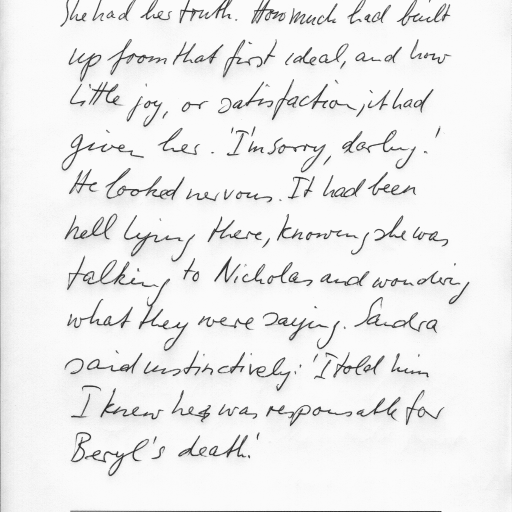 She had her truth. How much had built
up from that first ideal, and how
little joy, or satisfaction, it had
given her. 'I'm sorry, darling.'
He looked nervous. It had been
hell lying there, knowing she was
talking to Nicholas and wondring
what they were saying. Sandra
said instinctively: 'I told him
I knew he was responsable for
Beryl's death.'